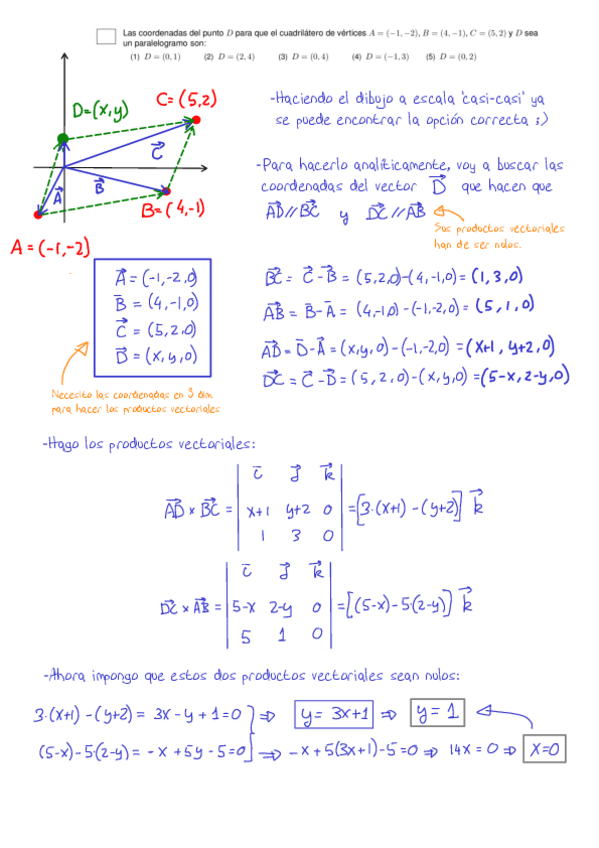 Las coordenadas del punto D para que el cuadrilátero de vértices A = (−1, −2), B = (4, −1), C = (5, 2) y D sea
un paralelogramo son:
(1) D = (0, 1) (2) D = (2, 4) (3) D = (0, 4) (4) D = (−1, 3) (5) D = (0, 2)
D=(x,y)
C=(5,2)
C⃗
A⃗
B⃗
B=(4,-1)
A=(-1,-2)
-Haciendo el dibujo a escala 'casi-casi' ya
se puede encontrar la opción correcta ;)
-Para hacerlo analíticamente, voy a buscar las
coordenadas del vector D⃗ que hacen que
AD⃗//BC⃗ y DC⃗//AB⃗
Sus productos vectoriales
han de ser nulos.
A⃗=(-1,-2,0)
B⃗=(4,-1,0)
C⃗=(5,2,0)
D⃗=(x,y,0)
Necesito las coordenadas en 3 dim
para hacer los productos vectoriales
BC⃗ = C⃗-B⃗ = (5,2,0)-(4,-1,0)=(1,3,0)
AB⃗ = B⃗-A⃗ = (4,-1,0)-(-1,-2,0)=(5,1,0)
AD⃗ = D⃗-A⃗ = (x,y,0)-(-1,-2,0)=(x+1, y+2,0)
DC⃗ = C⃗-D⃗ = (5,2,0)-(x,y,0)=(5-x,2-y,0)
-Hago los productos vectoriales:
i⃗ j⃗ k⃗
AD⃗ × BC⃗ = | x+1 y+2 0 | = [3·(x+1) - (y+2)] k⃗
1 3 0
i⃗ j⃗ k⃗
DC⃗ × AB⃗ = | 5-x 2-y 0 | = [(5-x)-5(2-y)] k⃗
5 1 0
-Ahora impongo que estos dos productos vectoriales sean nulos:
3·(x+1) - (y+2) = 3x - y + 1 = 0 ⇒ y = 3x+1 ⇒ y = 1
(5-x)-5(2-y) = -x + 5y - 5 = 0 ⇒ -x + 5(3x+1)-5=0 ⇒ 14x = 0 ⇒ x=0